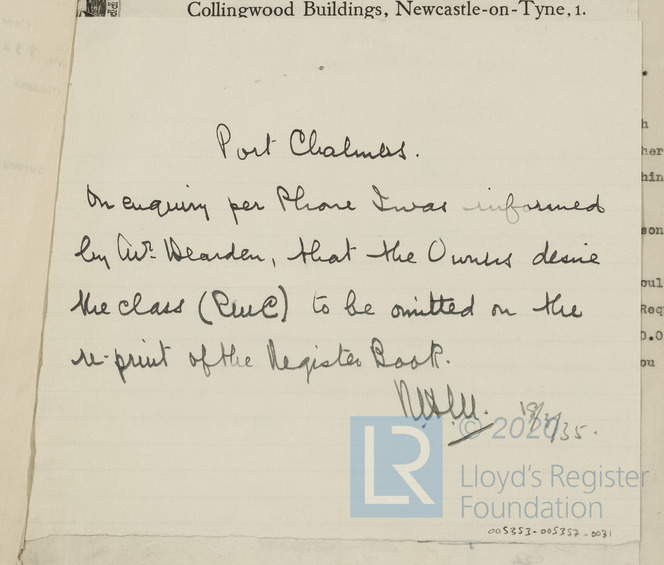 Collingwood Buildings, Newcastle-on-Tyne, 1.
Port Chalmers.
On enquiry per Phone I was informed
by Mr. Dearden, that the Owners desire
the class (RMC) to be omitted on the
re-print of the Register Book.
/35.
© 202
LR
Lloyd's Register
Foundation
005353-005357-0031
h
her
hin
son
oul
Req
0.0
ou